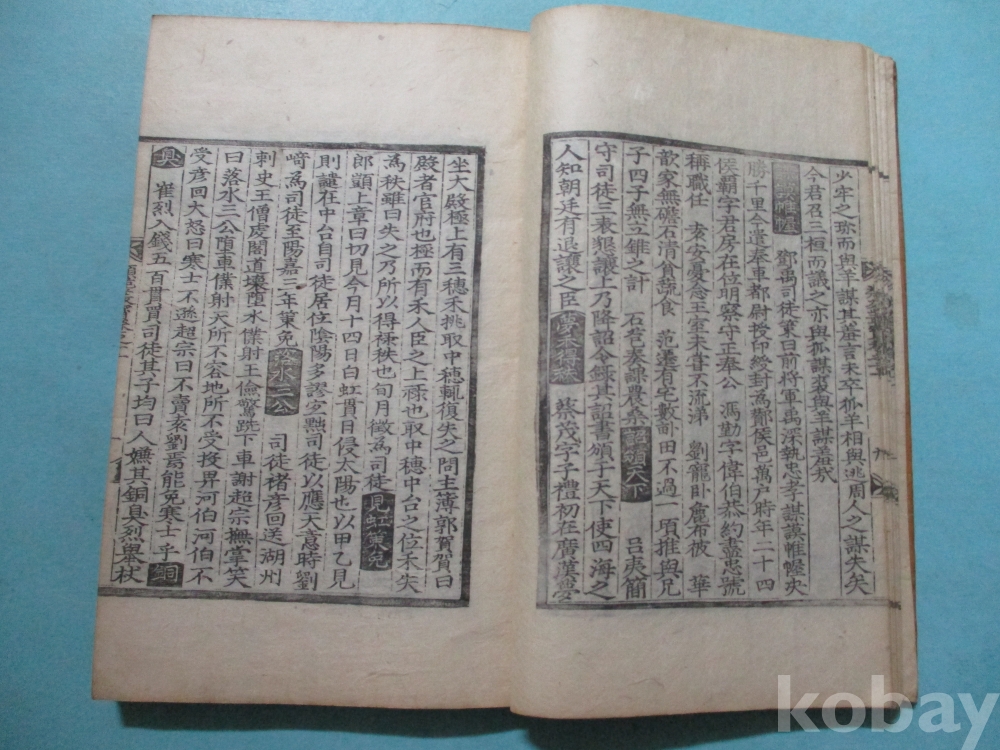 少牢之珎而與羊謀其羞言未卒狐羊相與逃周人之謀失矣
今君召三桓而議之亦與狐謀裘與羊謀羞哉
鄧禹司徒策曰前將軍禹深執忠孝謀謨帷幄决
勝千里今遣奉車都尉授印綬封為酇侯邑萬戶時年二十四
侯霸字君房在位明察守正奉公 馮勤字偉伯恭約盡忠號
稱職任 袁安憂念王室未甞不流涕 劉寵卧麁布被 華
歆家無磥石清貧蔬食 范遷有宅數畒田不過一項推與兄
子四子無立錐之計 石苞奏課農桑 詔頒天下 呂夷簡
守司徒三表懇讓上乃降詔令錄其詔書頒于天下使四海之
人知朝廷有退讓之臣 夢禾得秩 蔡茂字子禮初在廣漢夢
坐大殿極上有三穗禾挑取中穗輒復失之問主簿郭賀賀曰
殿者官府也極而有禾人臣之上禄也取中穗中台之位禾失
為秩雖曰失之乃所以得禄秩也旬月徵為司徒 見虹策免
郎顗上章曰切見今月十四日白虹貫日侵太陽也以甲乙見
則譴在中台自司徒居位陰陽多謬冝黜司徒以應天意時劉
﨑為司徒至陽嘉三年策免 落水三公 司徒禇彦回送湖州
刺史王僧虔閣道壊墮水僕射王儉驚跣下車謝超宗撫掌笑
曰落水三公墮車僕射天所不容地所不受投畀河伯河伯不
受彦回大怒曰寒士不遜超宗曰不賣袁劉焉能免寒士乎 銅
臭 崔烈入錢五百貫買司徒其子均曰人嫌其銅臭烈舉杖
kobay